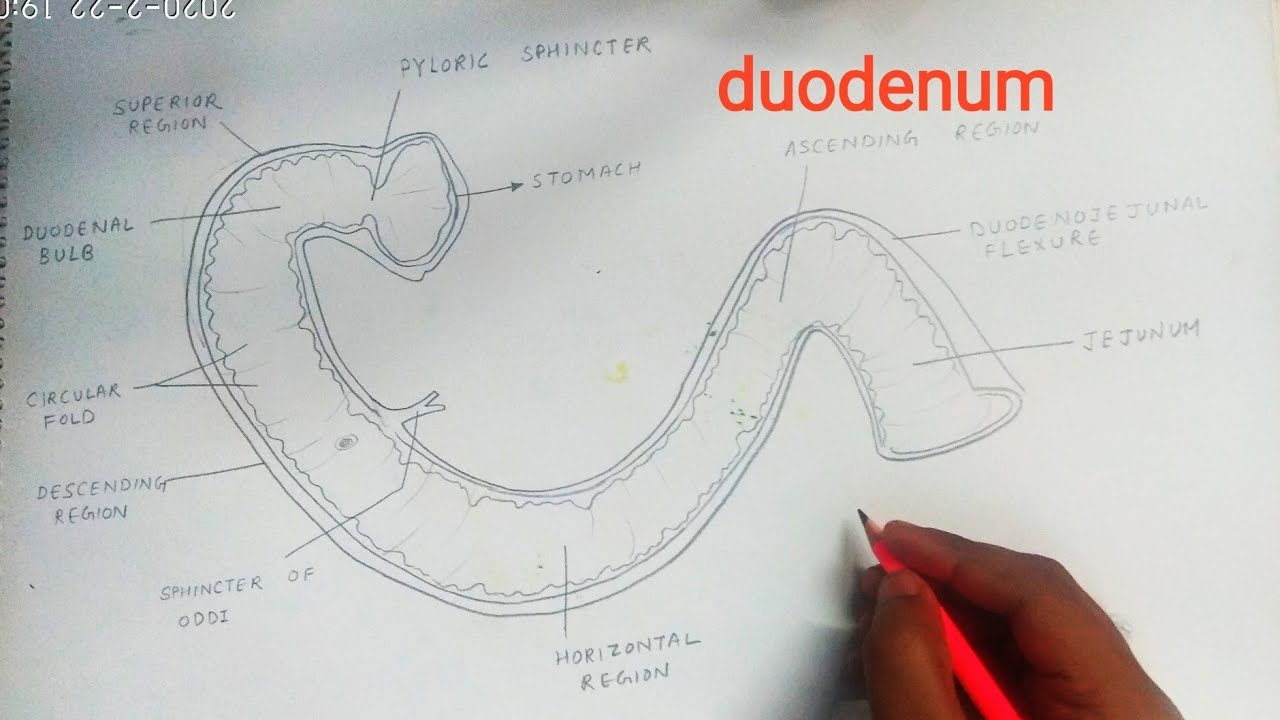 2020-2-22 19:0
duodenum
PYLORIC SPHINCTER
SUPERIOR
REGION
ASCENDING REGION
STOMACH
DUODENAL
BULB
DUODENOJEJUNAL
FLEXURE
JEJUNUM
CIRCULAR
FOLD
DESCENDING
REGION
SPHINCTER OF
ODDI
HORIZONTAL
REGION